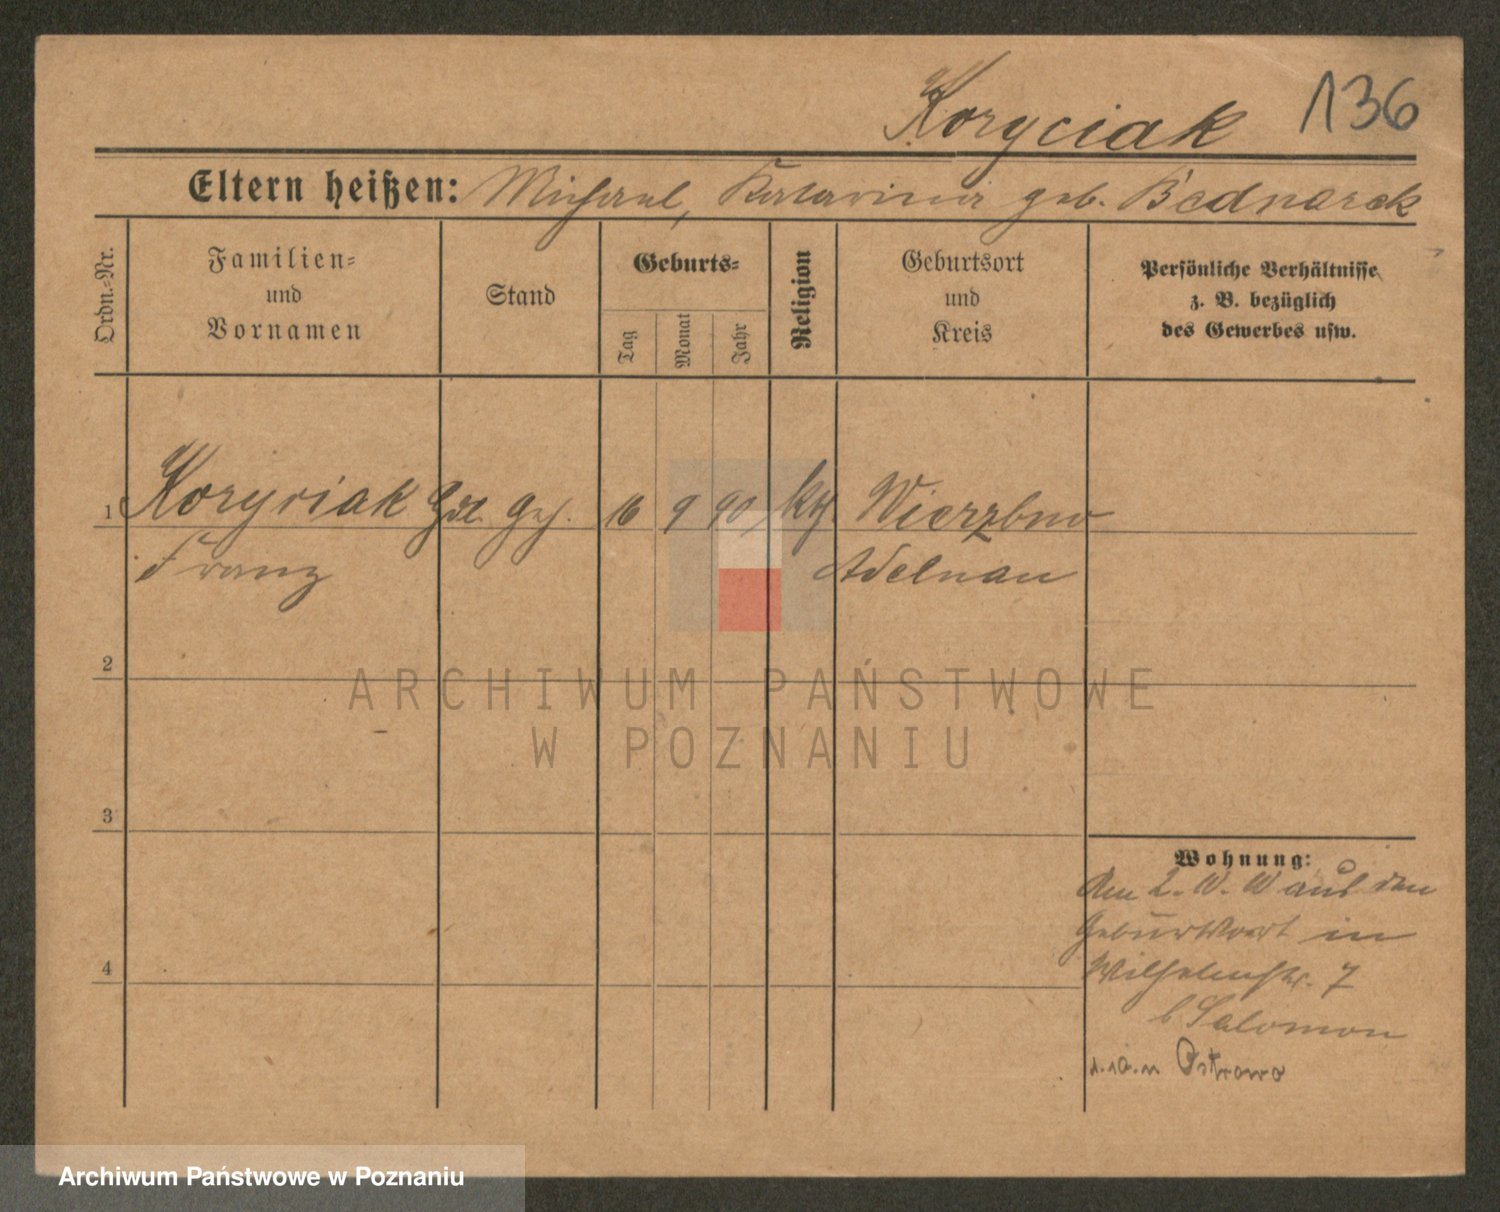 Koryciak 136
Eltern heißen: Michael, Katarina geb. Bednarek
Ordn.-Nr.
Familien-
und
Vornamen
Stand
Geburts-
Tag
Monat
Jahr
Religion
Geburtsort
und
Kreis
Persönliche Verhältnisse
z. B. bezüglich
des Gewerbes usw.
1 Koryciak 16 9 90 kth. Wierzbno
Franz Adelnau
2
3
4
Wohnung:
aus den
Geburtsort in
Wilhelmstr. 7
b Salomon
Ostrowo
ARCHIWUM PAŃSTWOWE
W POZNANIU
Archiwum Państwowe w Poznaniu